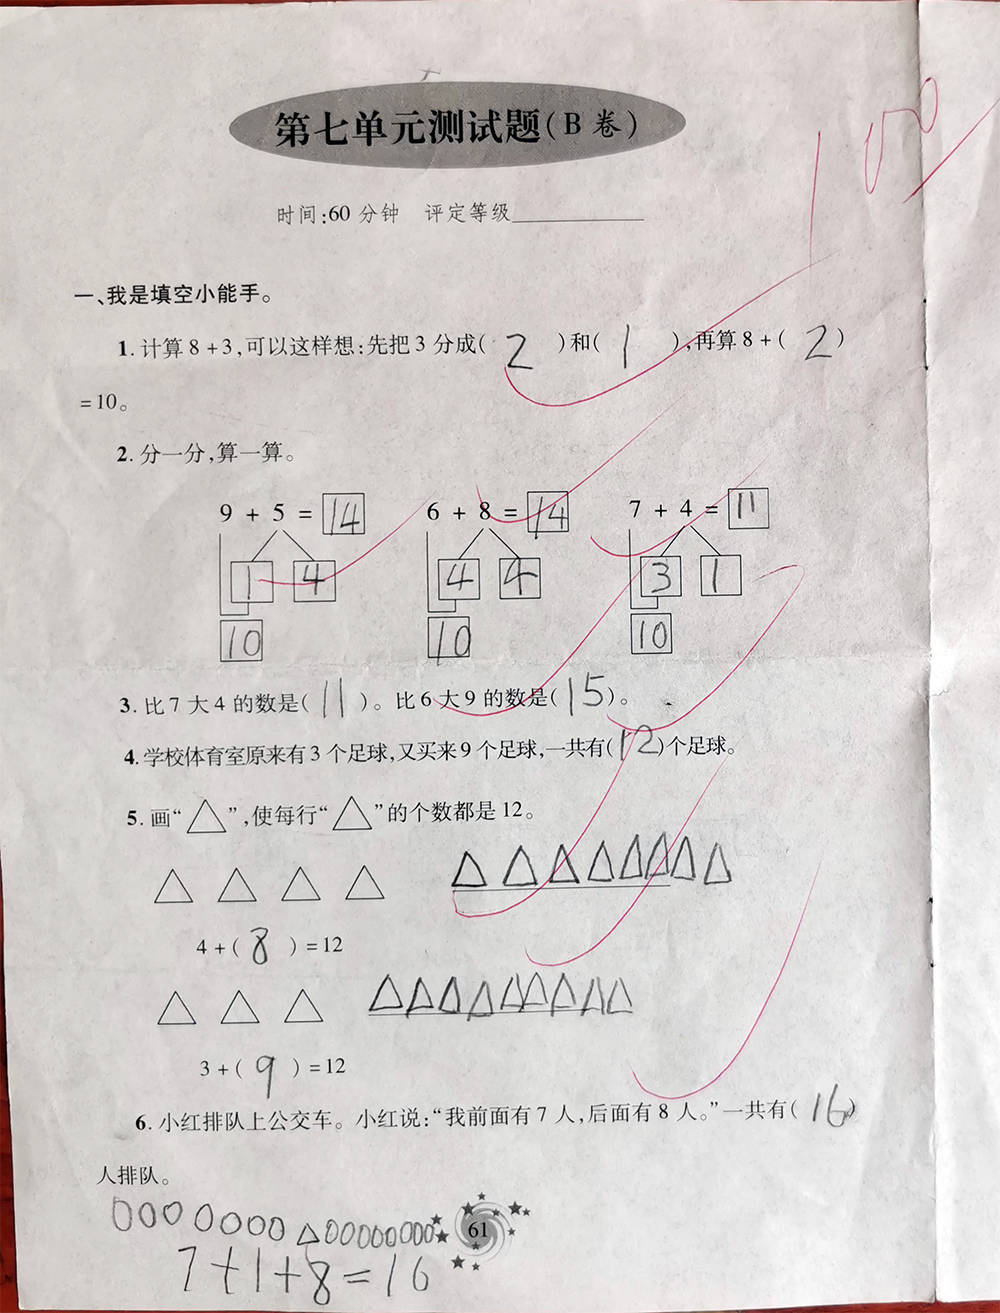 第七单元测试题(B卷)
100
时间:60分钟 评定等级
一、我是填空小能手。
1. 计算8+3,可以这样想:先把3分成( 2 )和( 1 ),再算8+( 2 )
=10。
2. 分一分,算一算。
9 + 5 = 14 6 + 8 = 14 7 + 4 = 11
1 4 4 4 3 1
10 10 10
3. 比7大4的数是( 11 )。比6大9的数是( 15 )。
4. 学校体育室原来有3个足球,又买来9个足球,一共有( 12 )个足球。
5. 画“△”,使每行“△”的个数都是12。
4+( 8 )=12
3+( 9 )=12
6. 小红排队上公交车。小红说:“我前面有7人,后面有8人。”一共有( 16 )
人排队。
7+1+8=16
61